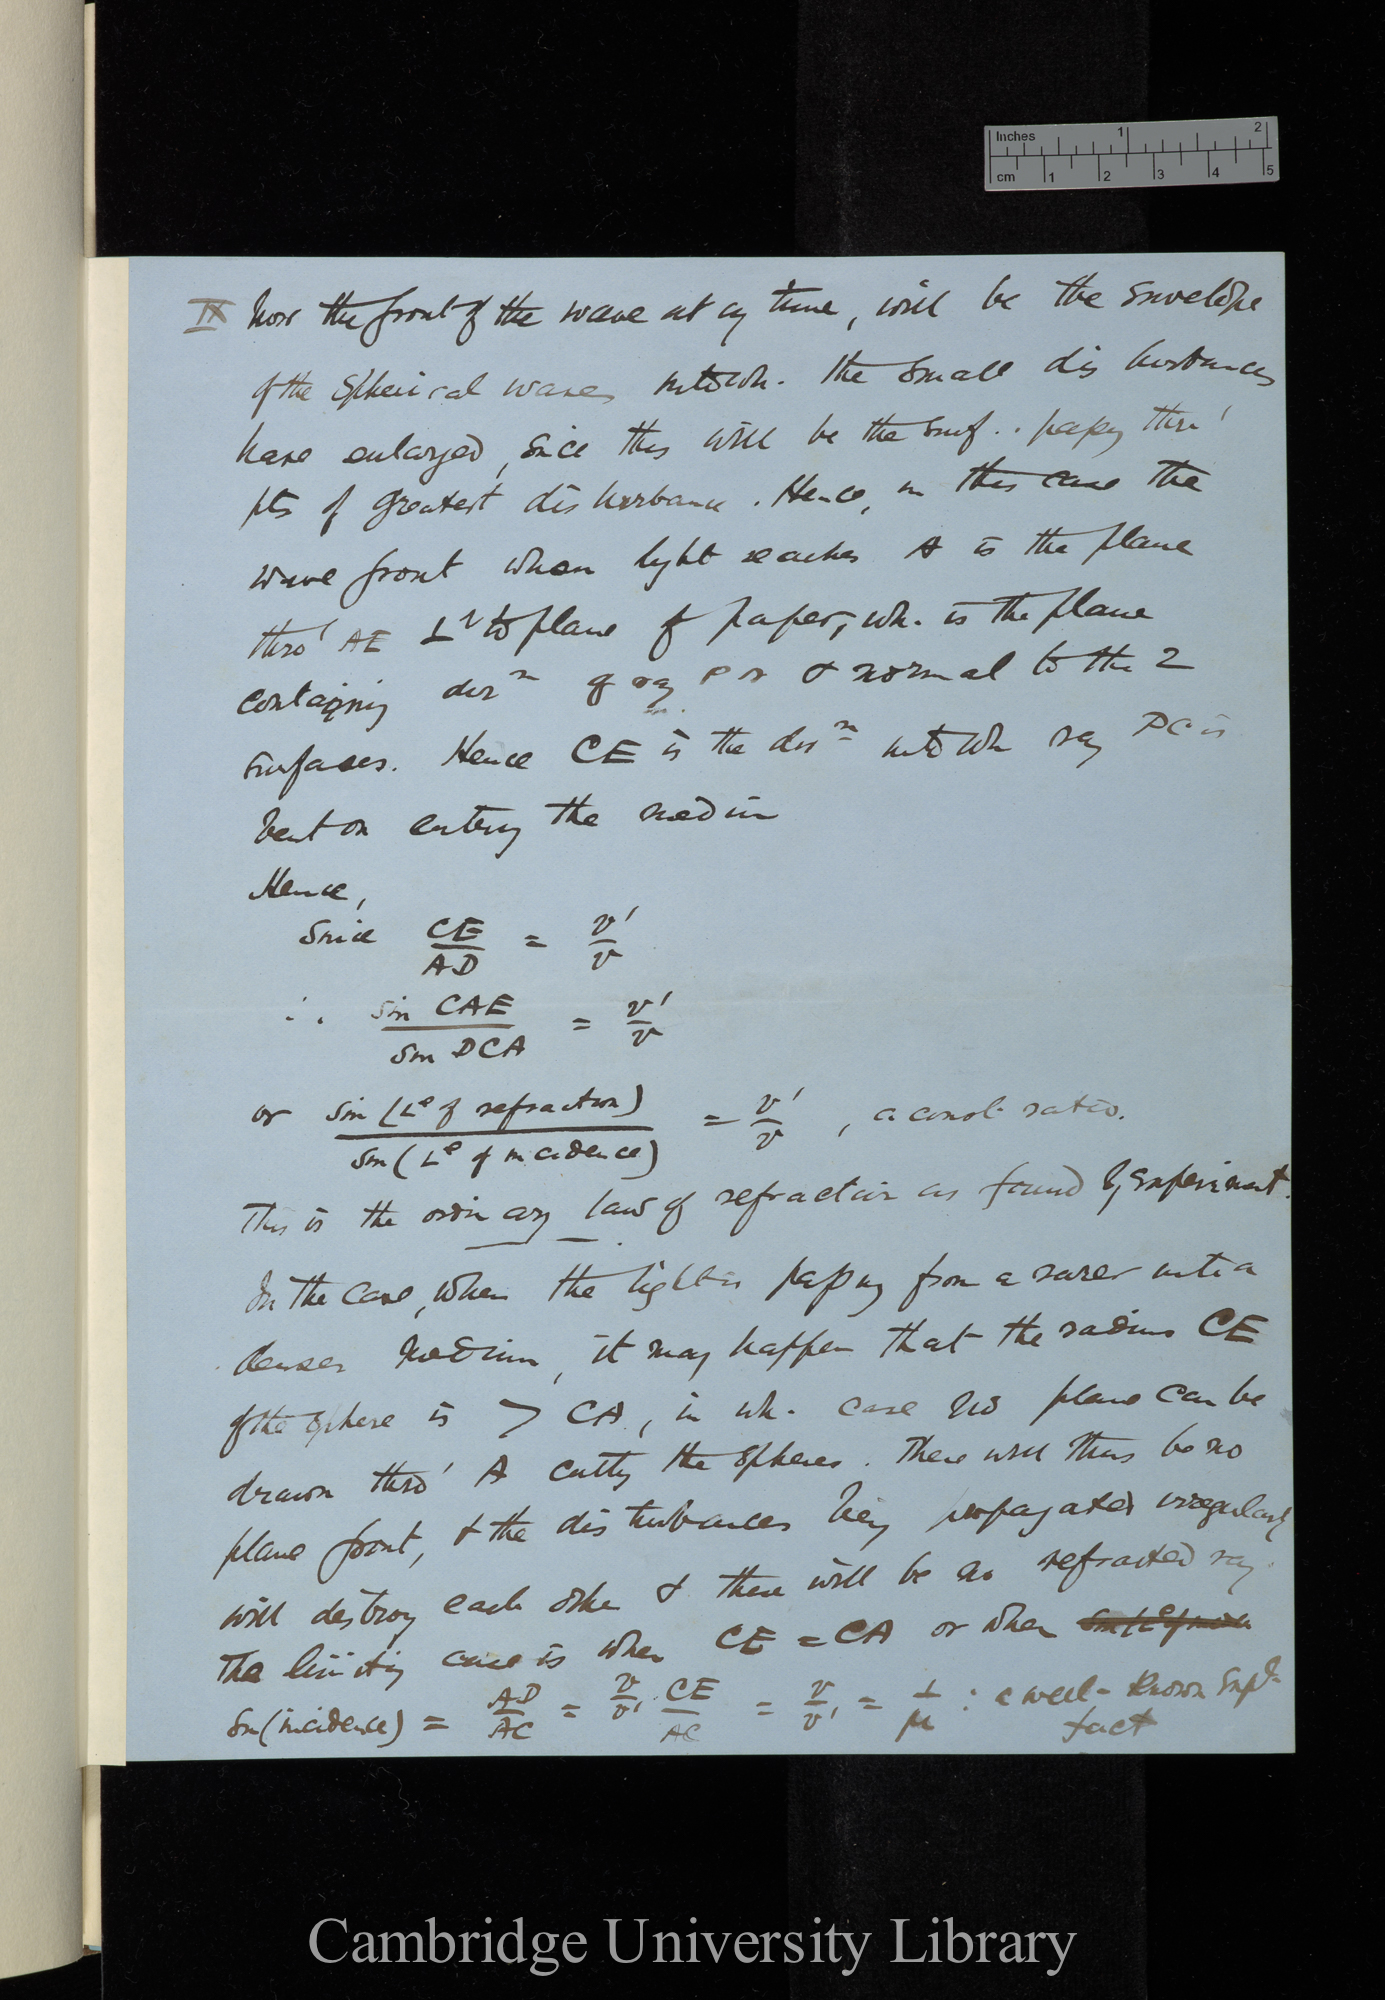 Inches 1 2
cm 1 2 3 4 5
IX Now the front of the wave at any time, will be the envelope
of the spherical waves into wh. the small disturbances
have enlarged, since this will be the surf. passing thro'
pts of greatest disturbance. Hence, in this case the
wave front when light reaches A is the plane
thro' AE ⊥r to plane of paper, wh. is the plane
containing dirn of ray & normal to the 2
surfaces. Hence CE is the dirn into wh ray PC is
bent on entering the medium
Hence,
Since CE/AD = v'/v
∴ sin CAE / sin DCA = v'/v
or sin (∠e of refraction) / sin (∠e of incidence) = v'/v, a const. ratio.
This is the ordinary law of refraction as found by experiment.
In the case, when the light is passing from a rarer into a
denser medium, it may happen that the radius CE
of the sphere is > CA, in wh. case no plane can be
drawn thro' A cutting the spheres. There will thus be no
plane front, & the disturbances being propagated irregularly
will destroy each other & there will be no refracted ray.
The limiting case is when CE = CA or when
Sin (incidence) = AD/AC = v/v' CE/AC = v/v' = 1/μ : a well-known expl.
fact
Cambridge University Library